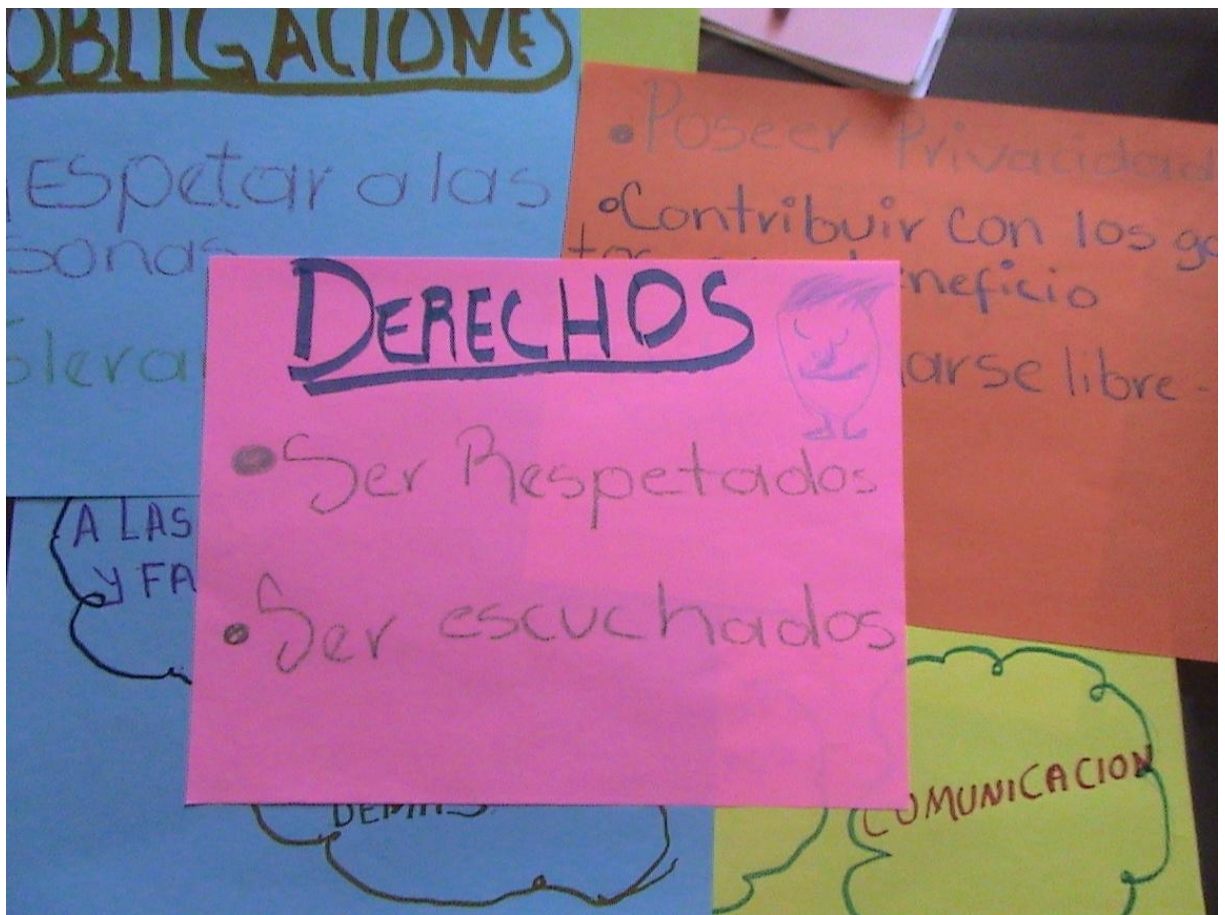 OBLIGACIONES
respetar a las
sonas
• Poseer Privacidad
• Contribuir con los ga
beneficio
arse libre-
DERECHOS
• Ser Respetados
• Ser escuchados
A LAS
Y FA
DEMAS
COMUNICACION